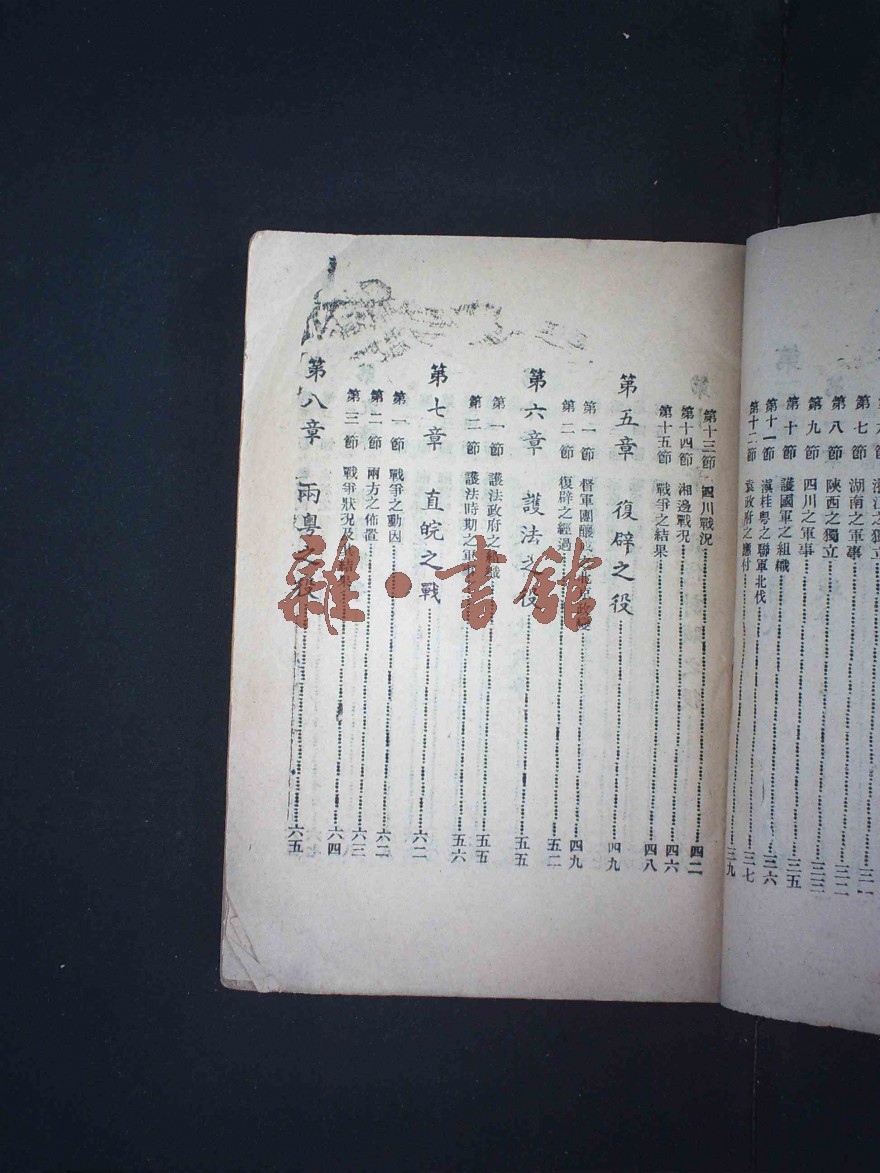 湖南之軍事……三一
第八節 陝西之獨立……三二
第九節 四川之軍事……三三
第十節 護國軍之組織……三五
第十一節 滇桂粵之聯軍北伐……三六
第十二節 袁政府之應付……三七
三九
第十三節 四川戰況……四二
第十四節 湘邊戰況……四六
第十五節 戰爭之結果……四八
第五章 復辟之役……四九
第一節 督軍團釀……四九
第二節 復辟之經過……五二
第六章 護法之役……五五
第一節 護法政府之組織……五五
第二節 護法時期之軍事……五六
第七章 直皖之戰……六二
第一節 戰爭之動因……六二
第二節 兩方之佈置……六三
第三節 戰爭狀況及其結果……六四
第八章 兩粵之役……六五
雜·書館